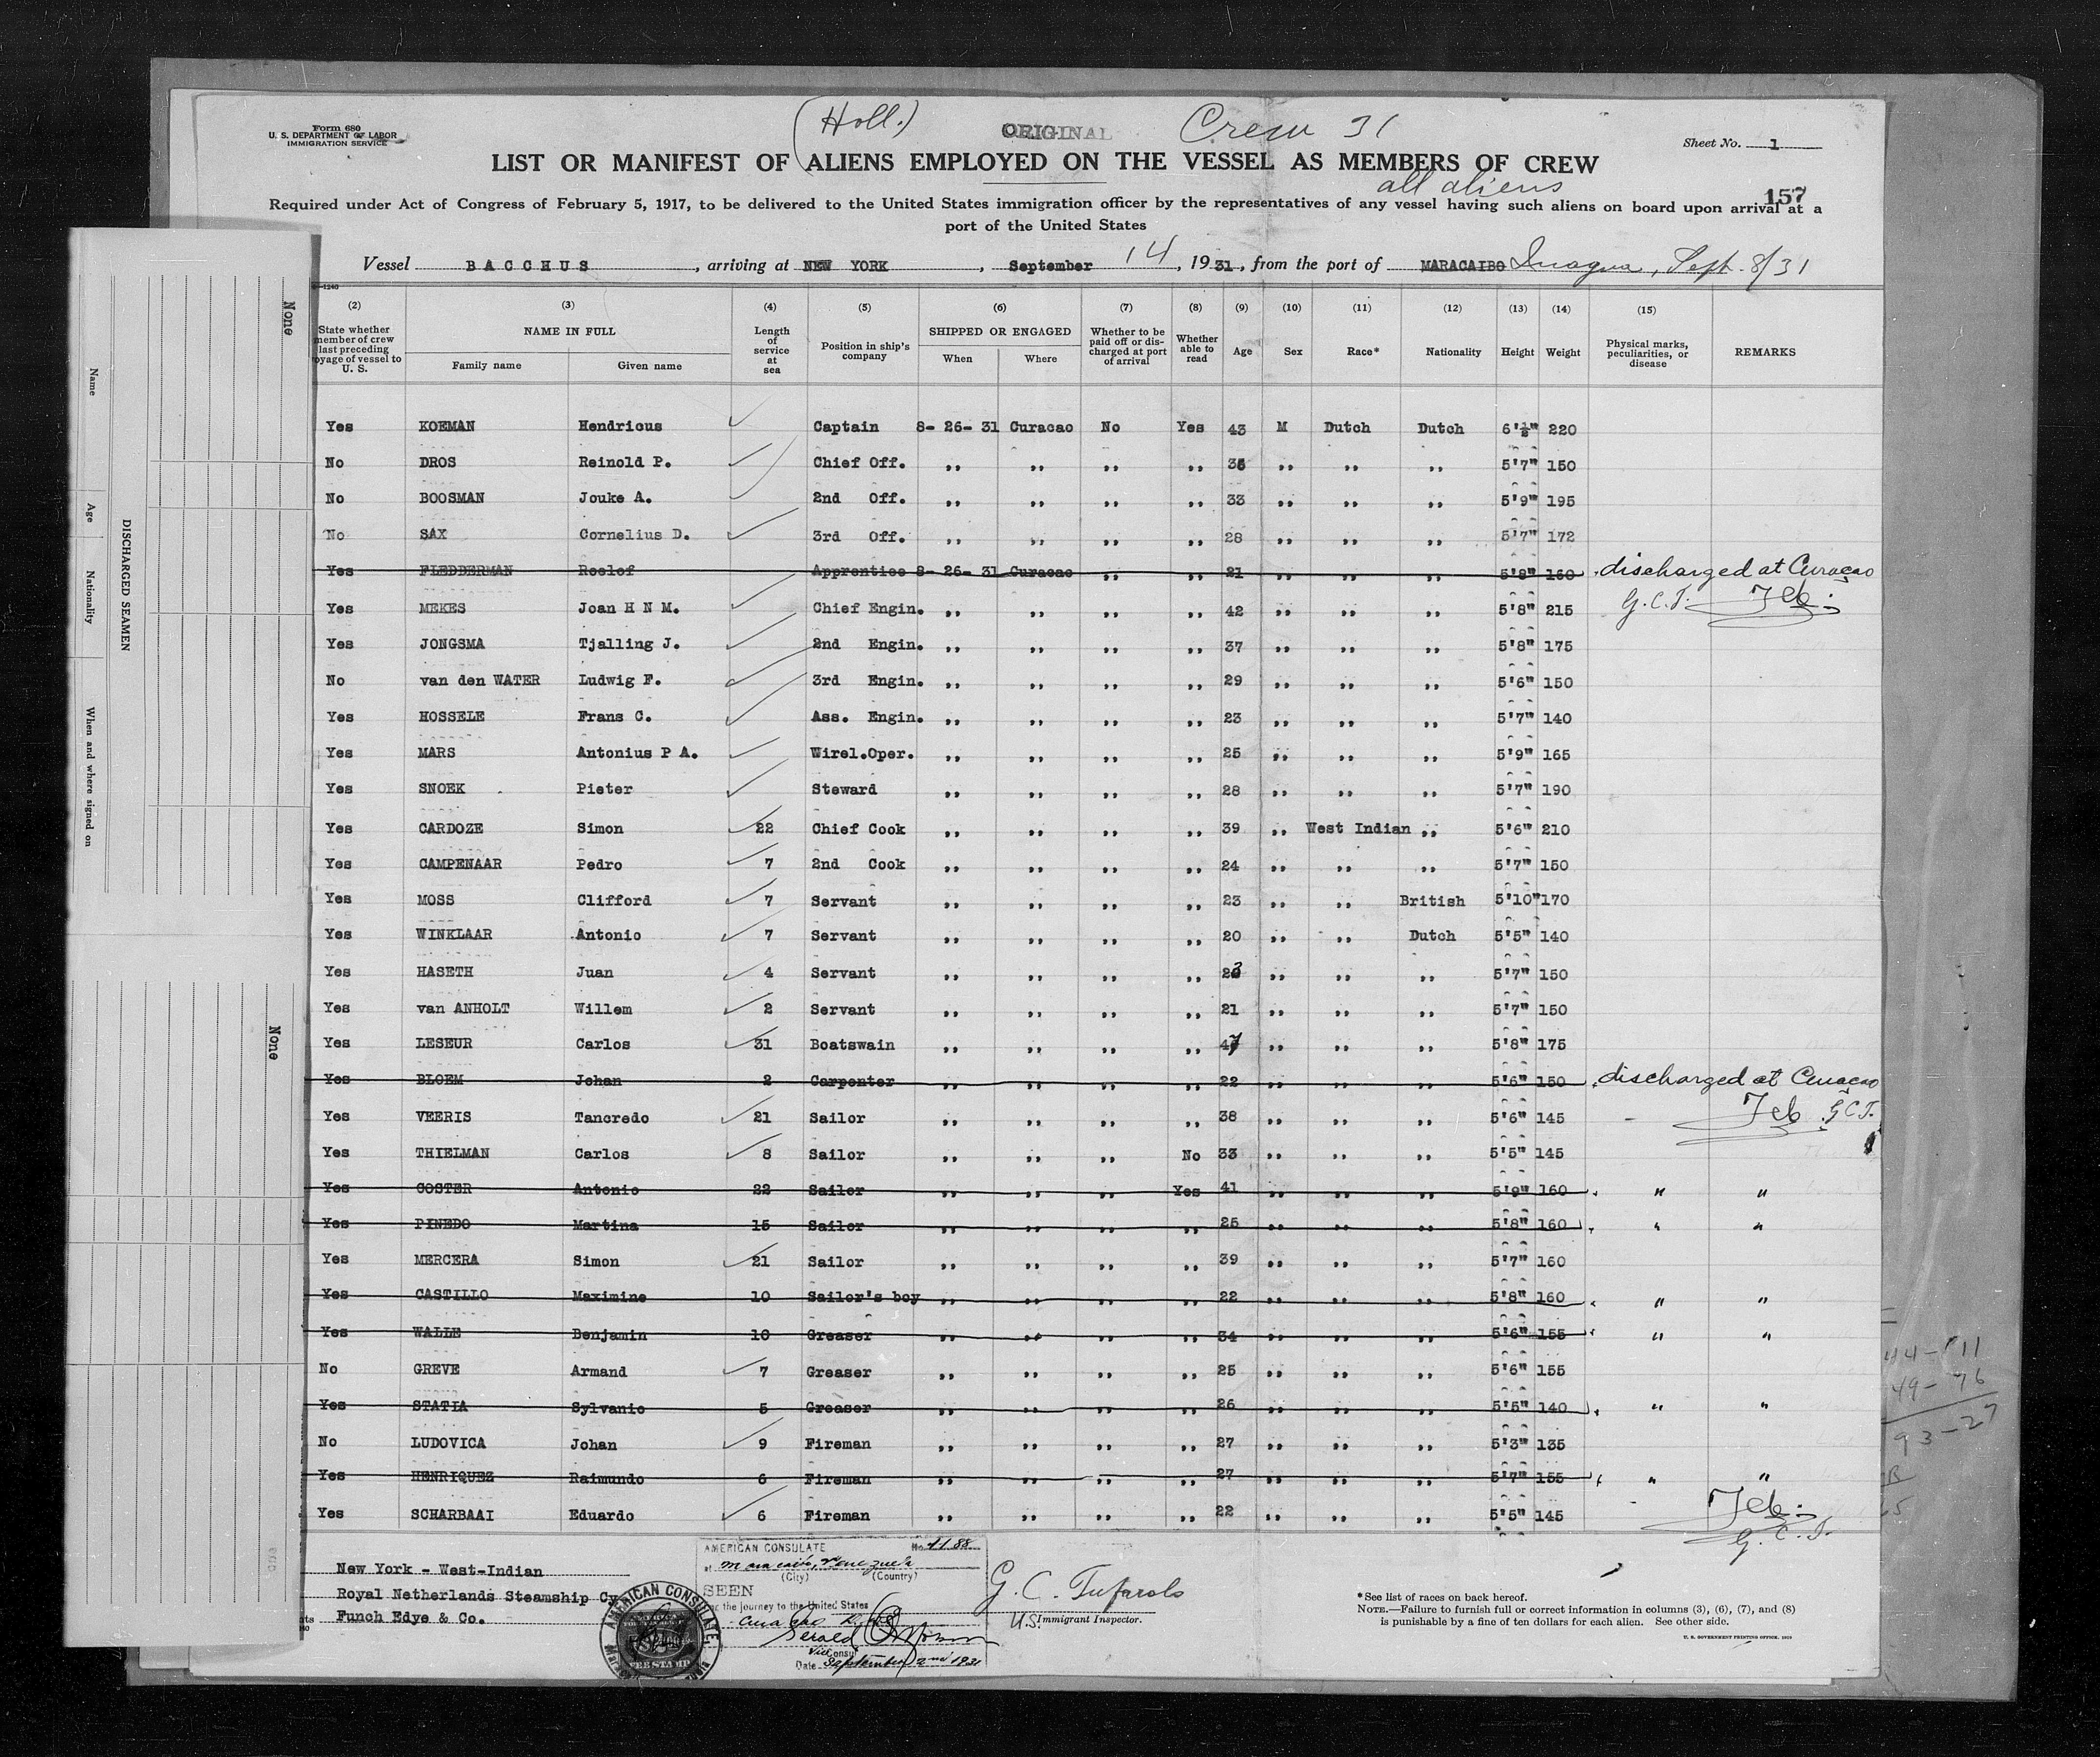 (Holl.) ORIGINAL Crew 31
Form 680
U. S. DEPARTMENT OF LABOR
IMMIGRATION SERVICE
Sheet No. 1
LIST OR MANIFEST OF ALIENS EMPLOYED ON THE VESSEL AS MEMBERS OF CREW
all aliens
157
Required under Act of Congress of February 5, 1917, to be delivered to the United States immigration officer by the representatives of any vessel having such aliens on board upon arrival at a
port of the United States
Vessel BACCHUS, arriving at NEW YORK, September 14, 1931, from the port of MARACAIBO Inagua, Sept. 8/31
(2) (3) (4) (5) (6) (7) (8) (9) (10) (11) (12) (13) (14) (15)
State whether member of crew last preceding voyage of vessel to U. S. NAME IN FULL Family name Given name Length of service at sea Position in ship's company SHIPPED OR ENGAGED When Where Whether to be paid off or discharged at port of arrival Whether able to read Age Sex Race* Nationality Height Weight Physical marks, peculiarities, or disease REMARKS
Yes KOEMAN Hendricus Captain 8-26-31 Curacao No Yes 43 M Dutch Dutch 6'½" 220
No DROS Reinold P. Chief Off. ,, ,, ,, ,, 36 ,, ,, ,, 5'7" 150
No BOOSMAN Jouke A. 2nd Off. ,, ,, ,, ,, 33 ,, ,, ,, 5'9" 195
No SAX Cornelius D. 3rd Off. ,, ,, ,, ,, 28 ,, ,, ,, 5'7" 172
Yes FLEDDERMAN Roelof Apprentice 8-26-31 Curacao ,, ,, 21 ,, ,, ,, 5'8" 160 discharged at Curaçao
Yes MEKES Joan H N M. Chief Engin. ,, ,, ,, ,, 42 ,, ,, ,, 5'8" 215 G.C.T.
Yes JONGSMA Tjalling J. 2nd Engin. ,, ,, ,, ,, 37 ,, ,, ,, 5'8" 175
No van den WATER Ludwig F. 3rd Engin. ,, ,, ,, ,, 29 ,, ,, ,, 5'6" 150
Yes HOSSELE Frans C. Ass. Engin. ,, ,, ,, ,, 23 ,, ,, ,, 5'7" 140
Yes MARS Antonius P A. Wirel.Oper. ,, ,, ,, ,, 25 ,, ,, ,, 5'9" 165
Yes SNOEK Pieter Steward ,, ,, ,, ,, 28 ,, ,, ,, 5'7" 190
Yes CARDOZE Simon 22 Chief Cook ,, ,, ,, ,, 39 ,, West Indian ,, 5'6" 210
Yes CAMPENAAR Pedro 7 2nd Cook ,, ,, ,, ,, 24 ,, ,, ,, 5'7" 150
Yes MOSS Clifford 7 Servant ,, ,, ,, ,, 23 ,, ,, British 5'10" 170
Yes WINKLAAR Antonio 7 Servant ,, ,, ,, ,, 20 ,, ,, Dutch 5'5" 140
Yes HASETH Juan 4 Servant ,, ,, ,, ,, 23 ,, ,, ,, 5'7" 150
Yes van ANHOLT Willem 2 Servant ,, ,, ,, ,, 21 ,, ,, ,, 5'7" 150
Yes LESEUR Carlos 31 Boatswain ,, ,, ,, ,, 47 ,, ,, ,, 5'8" 175
Yes BLOEM Johan 2 Carpenter ,, ,, ,, ,, 22 ,, ,, ,, 5'6" 150 discharged at Curaçao
Yes VEERIS Tancredo 21 Sailor ,, ,, ,, ,, 38 ,, ,, ,, 5'6" 145 G.C.T.
Yes THIELMAN Carlos 8 Sailor ,, ,, ,, No 33 ,, ,, ,, 5'5" 145
Yes COSTER Antonio 22 Sailor ,, ,, ,, Yes 41 ,, ,, ,, 5'9" 160 " "
Yes PINEDO Martina 15 Sailor ,, ,, ,, ,, 25 ,, ,, ,, 5'8" 160 " "
Yes MERCERA Simon 21 Sailor ,, ,, ,, ,, 39 ,, ,, ,, 5'7" 160
Yes CASTILLO Maximine 10 Sailor's boy ,, ,, ,, ,, 22 ,, ,, ,, 5'8" 160 " "
Yes WALLE Benjamin 10 Greaser ,, ,, ,, ,, 34 ,, ,, ,, 5'6" 155 " "
No GREVE Armand 7 Greaser ,, ,, ,, ,, 25 ,, ,, ,, 5'6" 155
Yes STATIA Sylvanie 5 Greaser ,, ,, ,, ,, 26 ,, ,, ,, 5'5" 140 " "
No LUDOVICA Johan 9 Fireman ,, ,, ,, ,, 27 ,, ,, ,, 5'3" 135
Yes HENRIQUEZ Raimundo 6 Fireman ,, ,, ,, ,, 27 ,, ,, ,, 5'7" 155 " "
Yes SCHARBAAI Eduardo 6 Fireman ,, ,, ,, ,, 22 ,, ,, ,, 5'5" 145
G. C. T.
New York - West-Indian
Royal Netherlands Steamship Cy
Funch Edye & Co.
AMERICAN CONSULATE No. 1188
at Maracaibo, Venezuela
(City) (Country)
SEEN
For the journey to the United States
Vice Consul
Date September 2nd 1931
AMERICAN CONSULATE
FEE STAMP
G. C. Tufarolo
U.S. Immigrant Inspector.
*See list of races on back hereof.
NOTE.—Failure to furnish full or correct information in columns (3), (6), (7), and (8)
is punishable by a fine of ten dollars for each alien. See other side.
U. S. GOVERNMENT PRINTING OFFICE
None
Name
Age
Nationality
When and where signed on
DISCHARGED SEAMEN
None
44-11
49-76
93-27